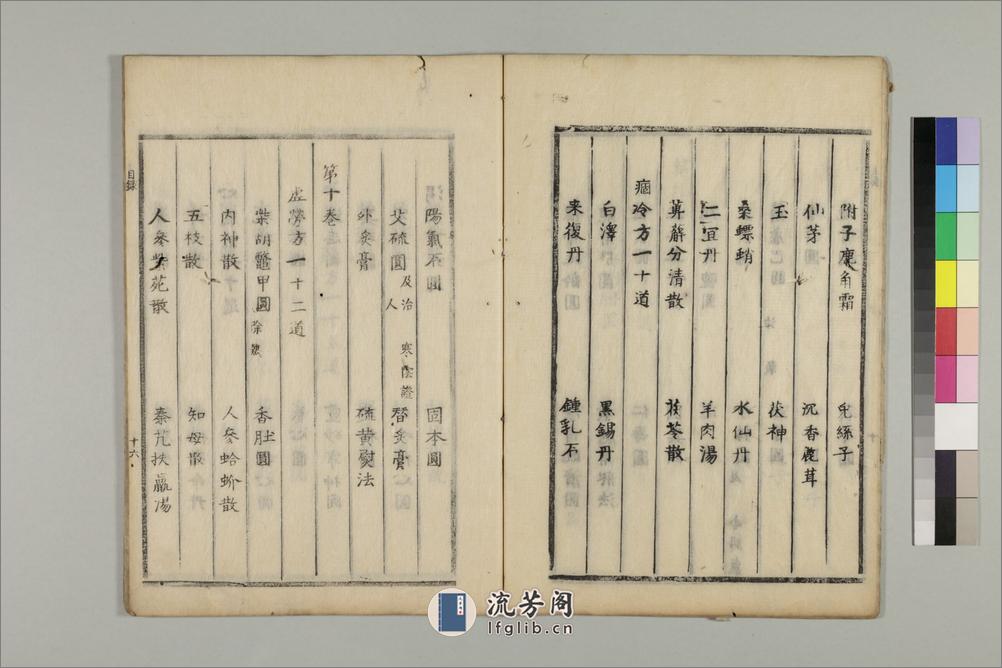 附子鹿角霜　兔絲子
仙茅圓　沉香鹿茸
玉　茯神
桑螵蛸　水仙丹
二宜丹　羊肉湯
萆薢分清散　茯苓散
痼冷方一十道
白澤　黑錫丹
来復丹　鍾乳石
陽氣石圓　固本圓
艾硫圓及治寒陰證人　替灸膏
外灸膏　硫黄熨法
第十卷
虛勞方一十二道
柴胡鼈甲圓　香肚圓
内神散　人參蛤蚧散
五枝散　知母散
人參紫菀散　秦艽扶羸湯
目録
十六
流芳阁
lfglib.cn